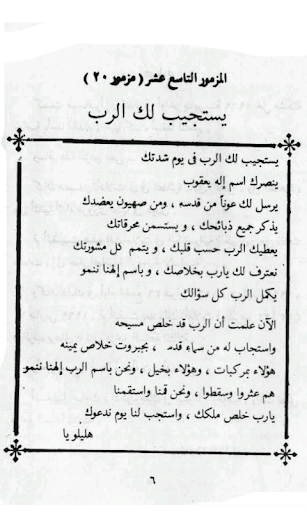 المزمور التاسع عشر ( مزمور ٢٠ )
يستجيب لك الرب
يستجيب لك الرب فى يوم شدتك
ينصرك اسم إله يعقوب
يرسل لك عوناً من قدسه ، ومن صهيون يعضدك
يذكر جميع ذبائحك ، و يستسمن محرقاتك
يعطيك الرب حسب قلبك ، و يتمم كل مشورتك
نعترف لك يارب بخلاصك ، و باسم إلهنا ننمو
يكمل الرب كل سؤالك
الآن علمت أن الرب قد خلص مسيحه
واستجاب له من سماء قدسه ، بجبروت خلاص يمينه
هؤلاء بمركبات ، وهؤلاء بخيل ، ونحن باسم الرب إلهنا ننمو
هم عثروا وسقطوا ، ونحن قمنا واستقمنا
يارب خلص ملكك ، واستجب لنا يوم ندعوك
هليلو يا
٦